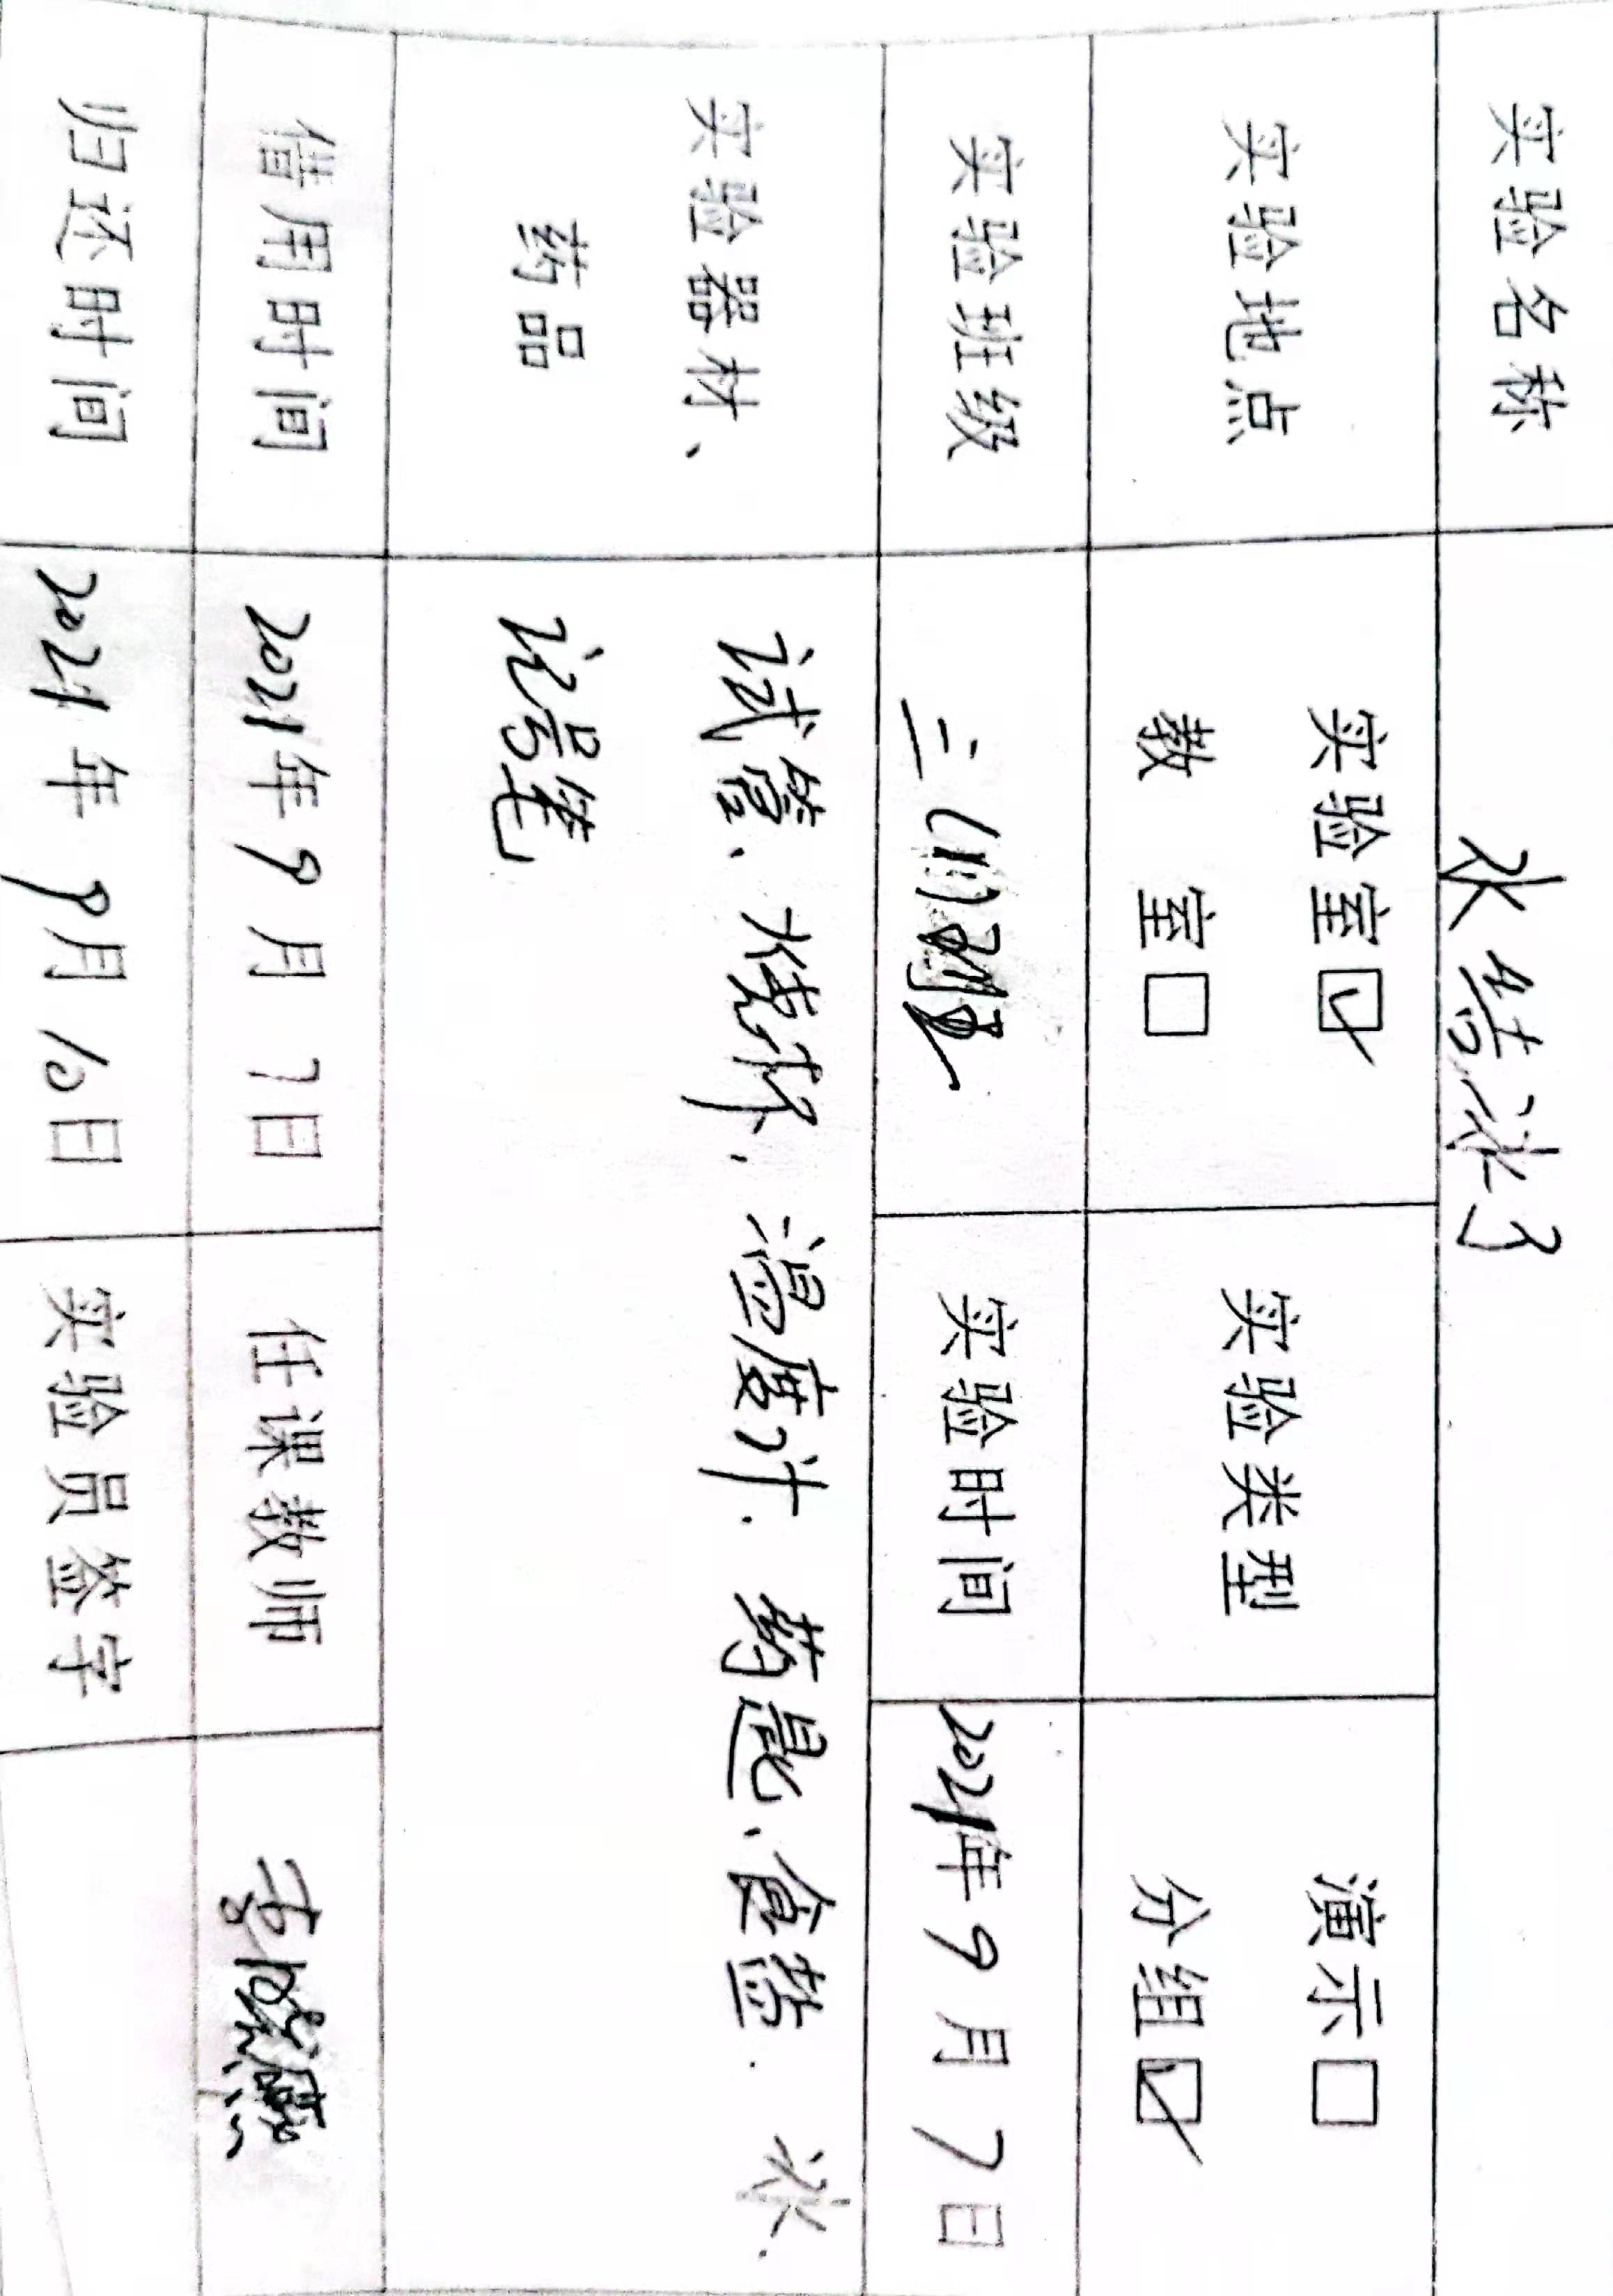 实验名称 水结冰了
实验地点 实验室☑ 教 室□ 实验类型 演示□ 分组☑
实验班级 三(1)班 实验时间 2021年9月7日
实验器材、药品 试管、烧杯、温度计、药匙、食盐、冰、
记号笔
借用时间 2021年9月7日 任课教师 李
归还时间 2021年9月10日 实验员签字